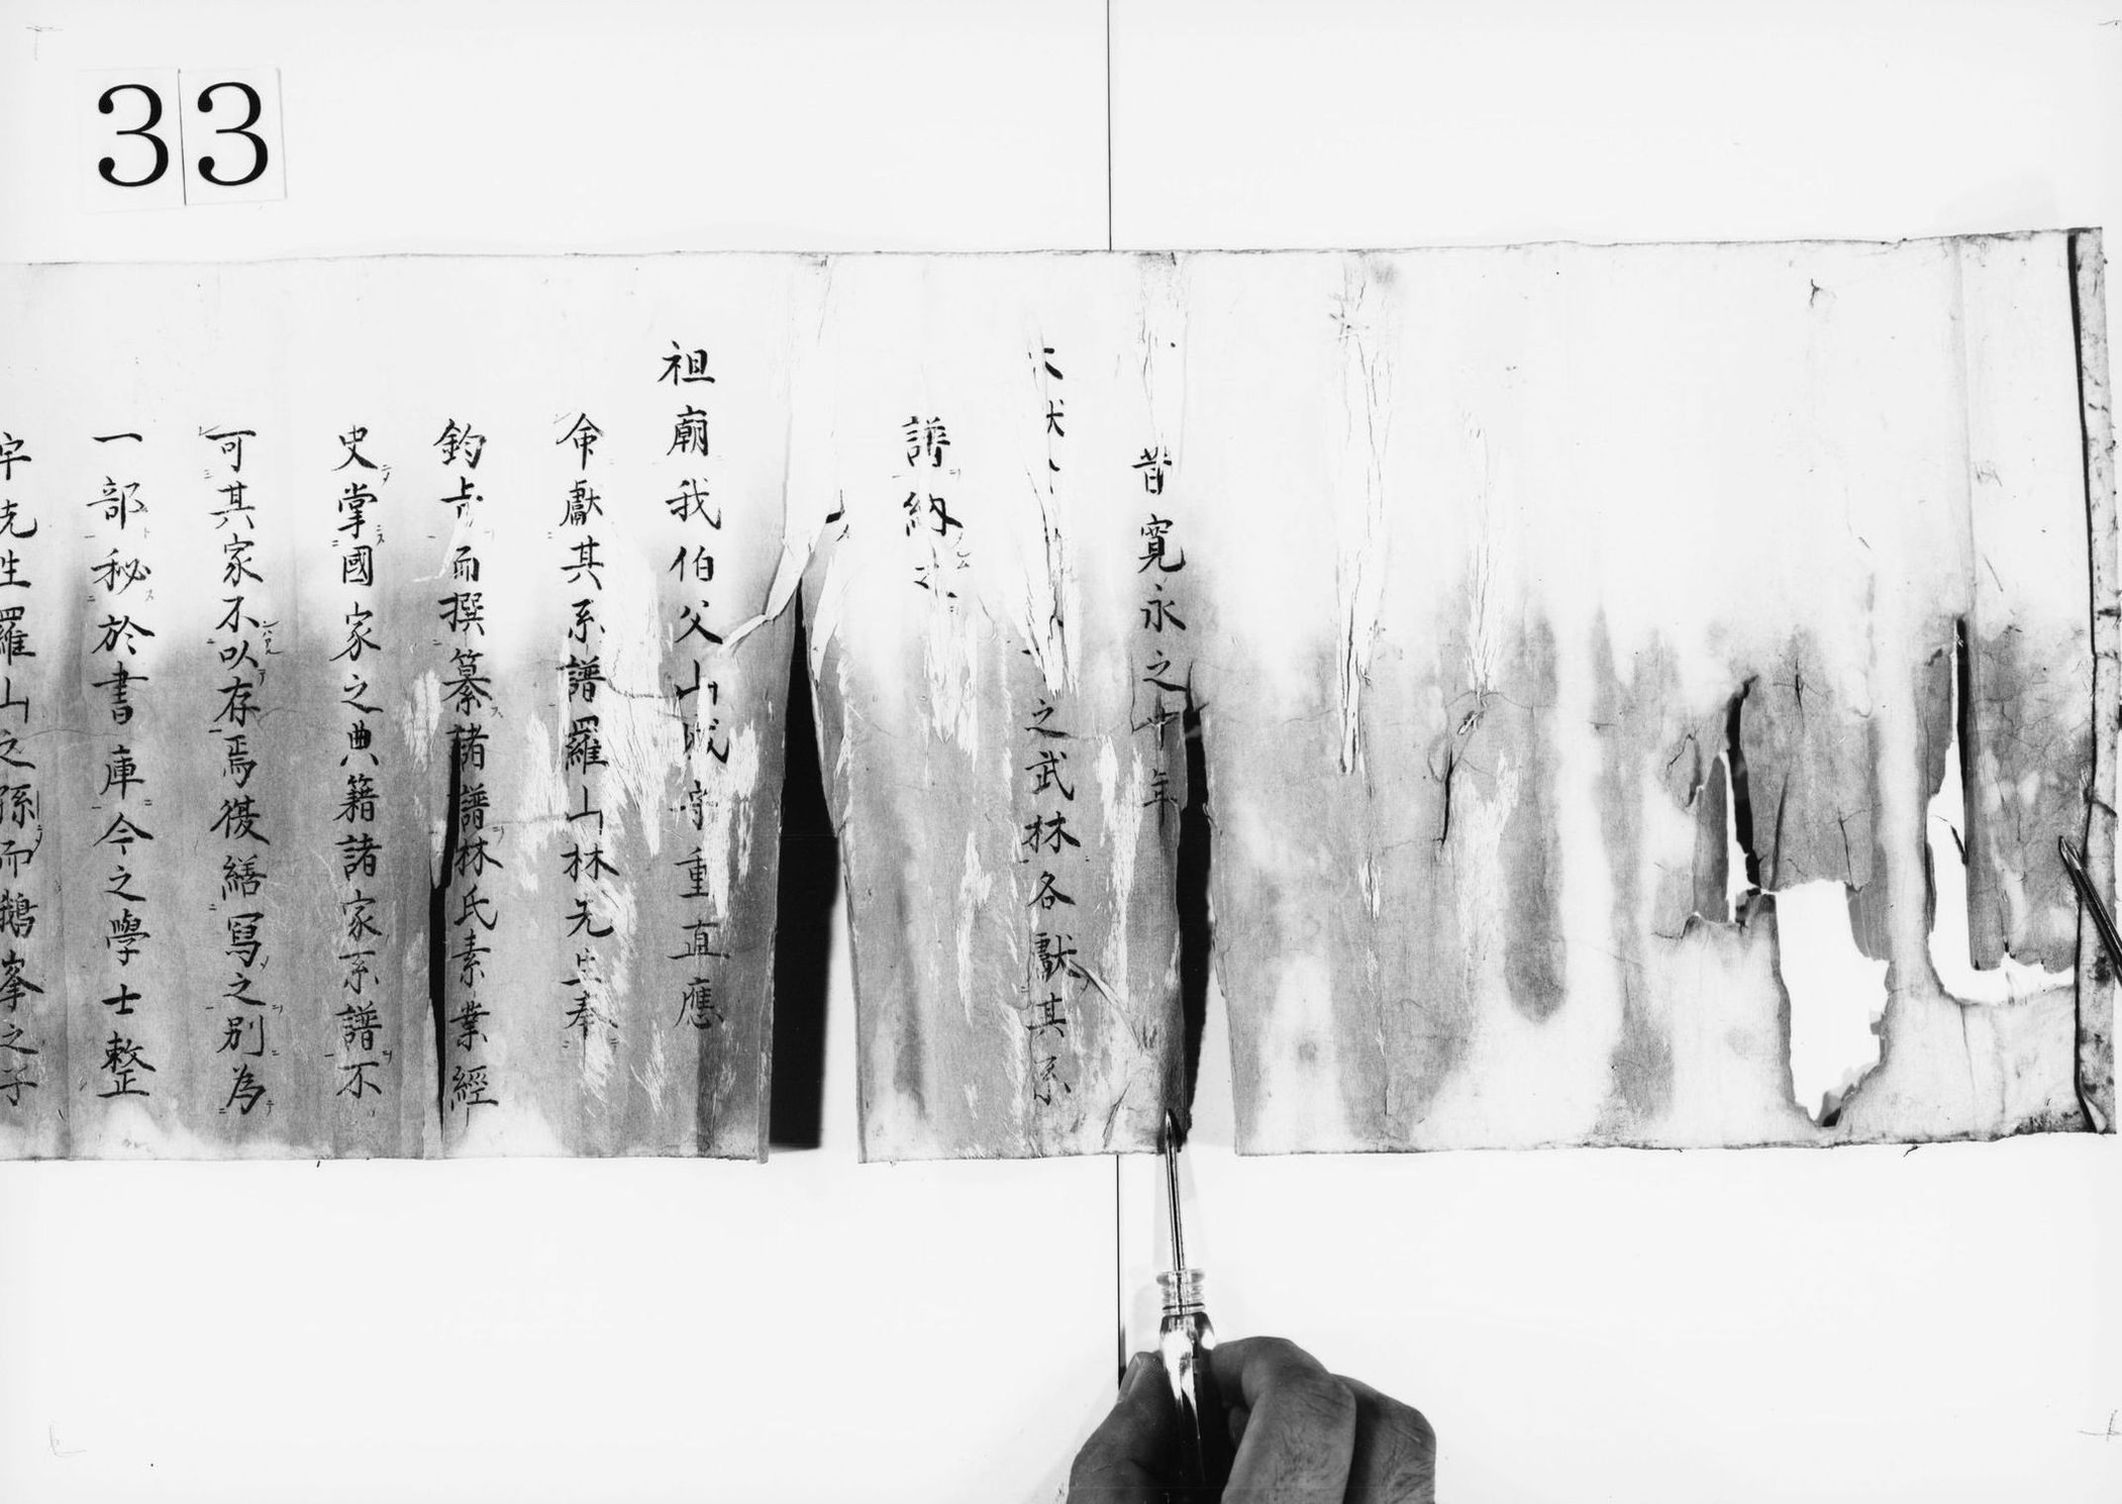 33
昔寛永之中年
之武林各獻其系
譜納之
祖廟我伯父山城守重直應
命獻其系譜羅山林先生奉
鈞命而撰纂諸譜林氏素業經
史掌國家之典籍諸家系譜不
可其家不以存焉復繕寫之別為
一部秘於書庫今之學士整
宇先生羅山之孫而鵝峯之子